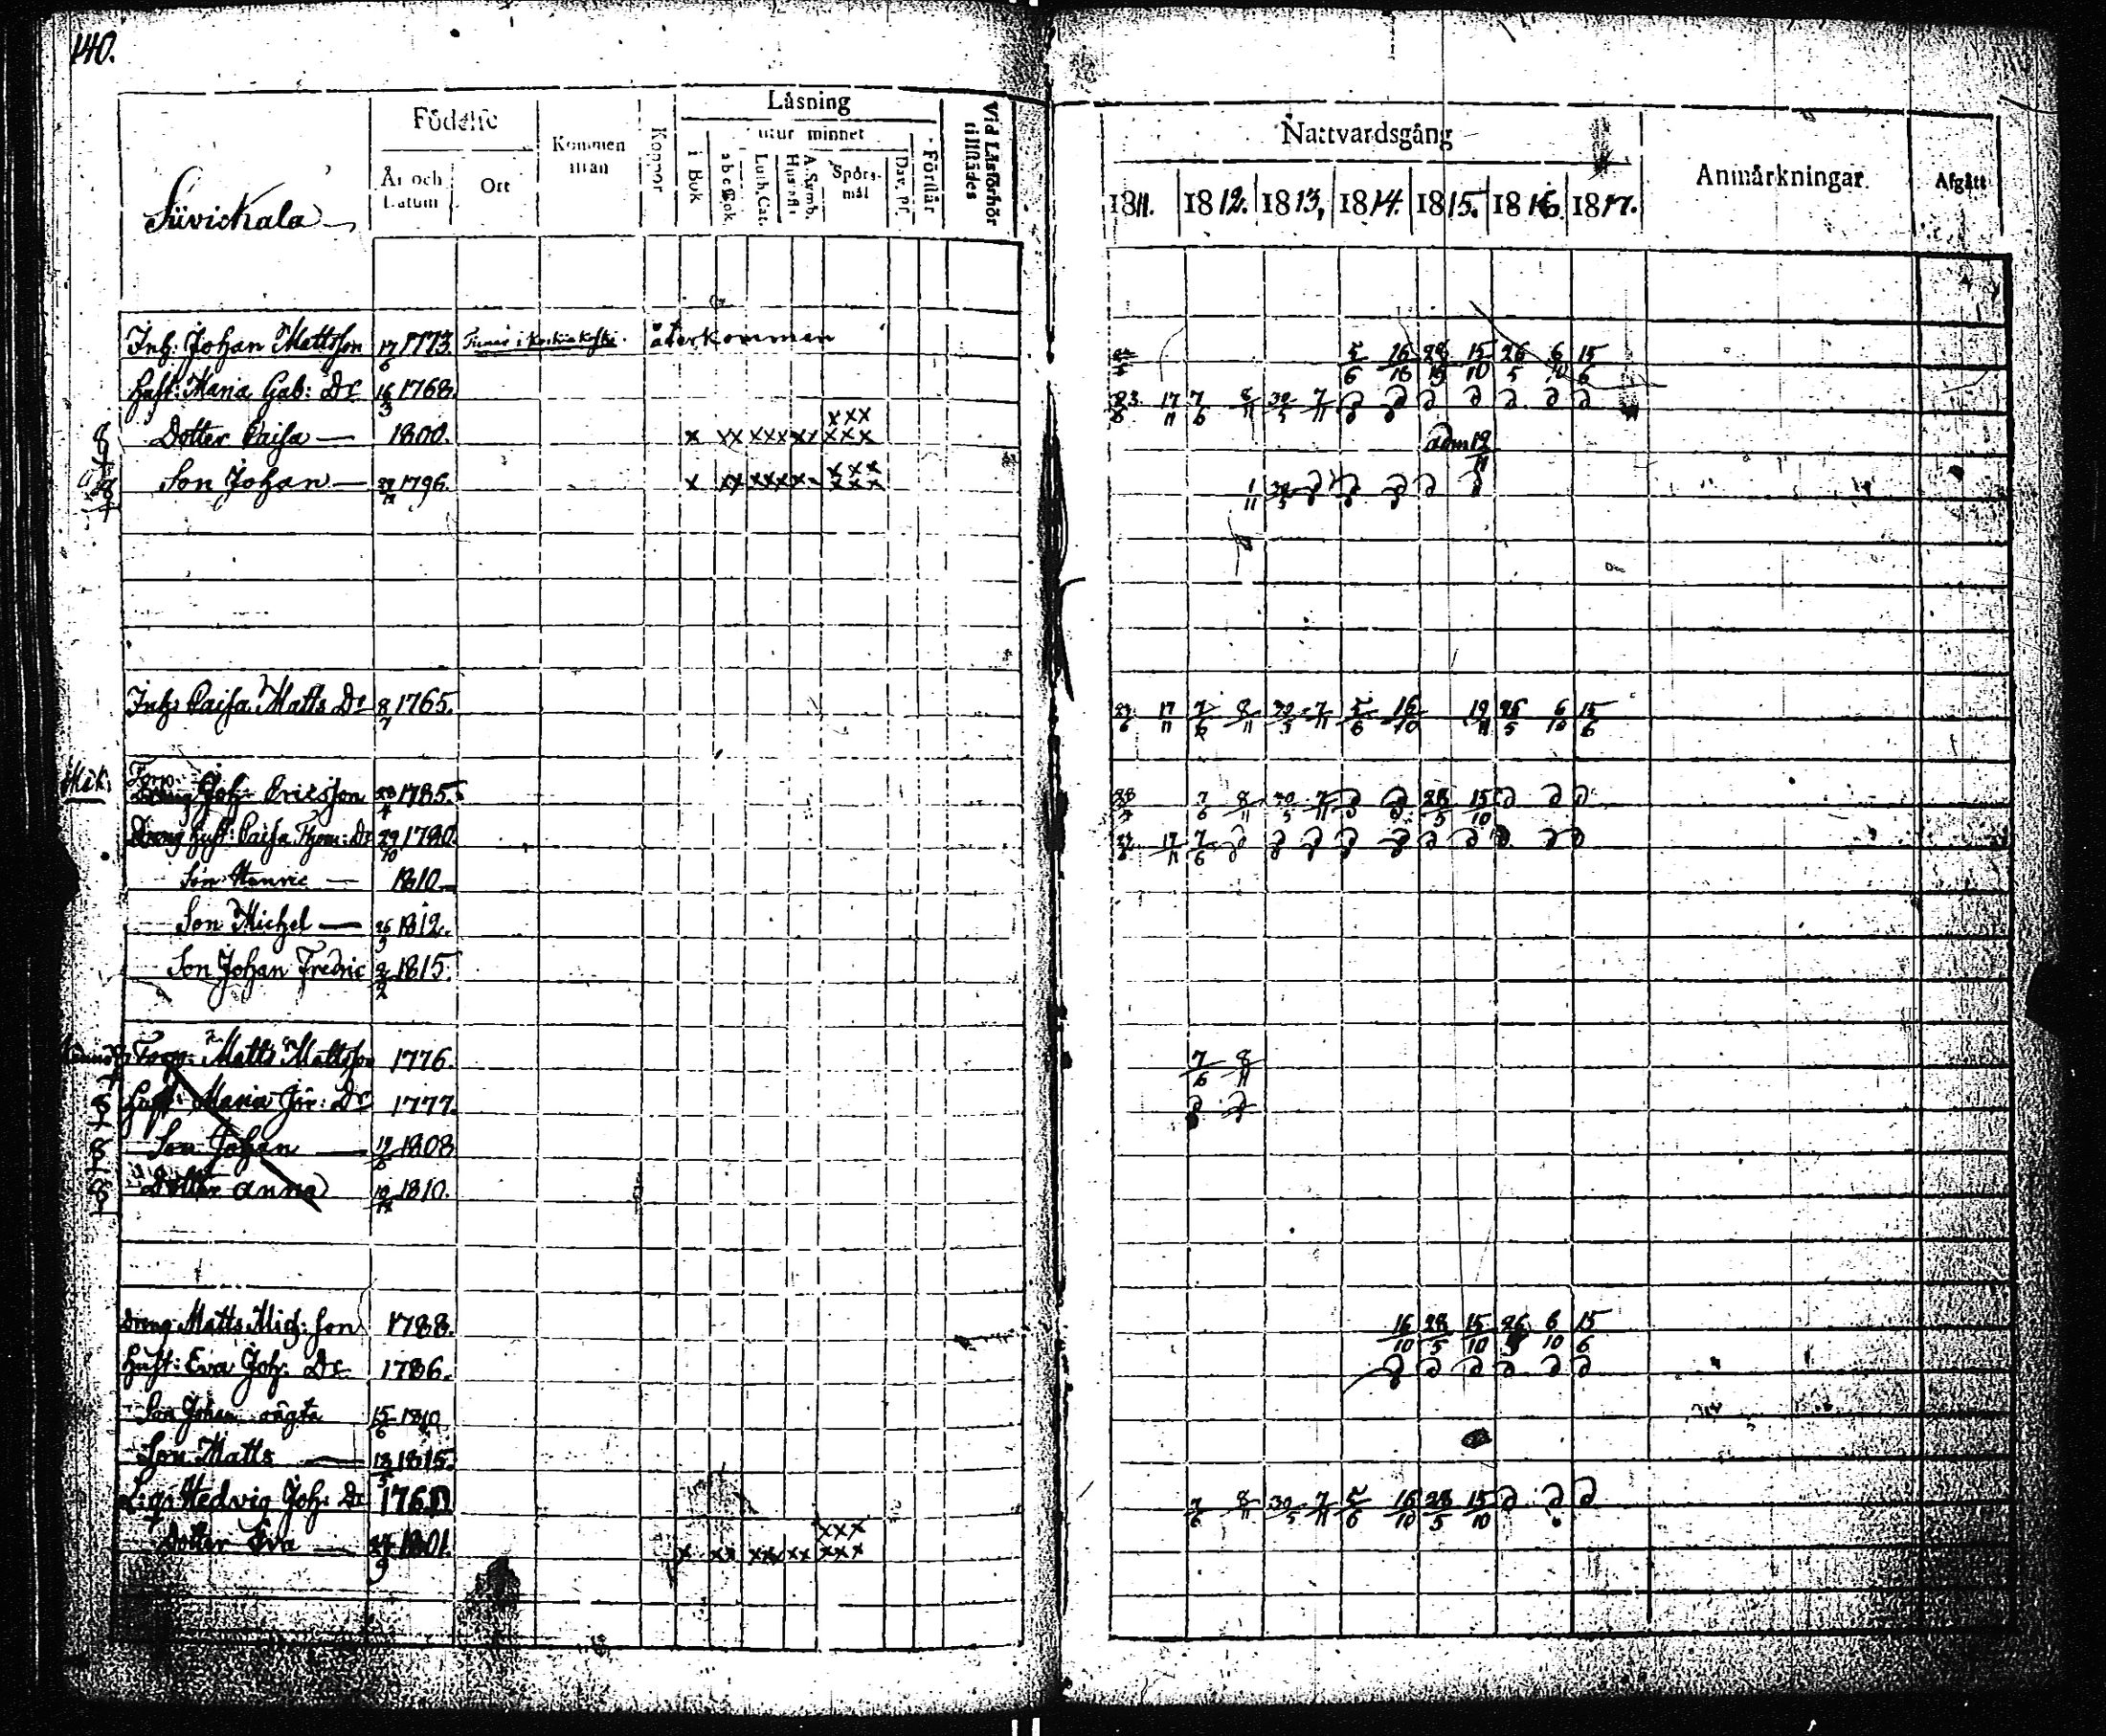 140.
Födelse Kommen ifrån Koppor Läsning Vid Läsförhör tillstädes Nattvardsgång Anmärkningar. Afgått
utur minnet
År och Datum Ort i Bok abcBok Luth. Cat. A. Symb. Spörs-mål Dav. ps. Förstår
Siivickala 1811. 1812. 1813. 1814. 1815. 1816. 1817.
Inh: Johan Mattsson 17/6 1773. återkommen 5/6 16/10 28 15/10 26/5 6/10 15/6
Hust: Maria Gab: Dr 16/3 1768. 17/11 7/6 8/11 30/5 7/11 D D D D D D D
8 Dotter Caisa — 1800. x xx xxx xx xxx xxx adm 19/11
8 Son Johan — 1796. x xx xxx x xxx xxx 1/11 30/5 D D D D D
Inh: Caisa Matts Dr 8/7 1765. 17/11 7/6 8/11 30/5 7/11 5/6 16/10 19/11 26/5 6/10 15/6
Torp. Joh: Ericsson 1785. 7/6 8/11 30/5 7/11 D D 28/5 15/10 D D D
Dreng Hust: Caisa Dr 29/10 1780. 17/11 7/6 D D D D D D D D D D
Son Henric — 1810
Son Michel — 26/9 1812.
Son Johan Fredric 2/2 1815.
Torp. Matts Mattsson 1776. 7/6 8/11
8 Hust: Maria Jör: Dr 1777. D D
8 Son Johan — 19/6 1808
8 Dotter Anna 1810.
Dreng Matts Mich: son 1788. 16/10 28/5 15/10 26/5 6/10 15/6
Hust: Eva Joh: Dr 1786. D D D D D D
Son Johan oägta 15/6 1810
Son Matts — 13/5 1815.
Hedvig Joh: Dr 7/6 8/11 30/5 7/11 5/6 16/10 28/5 15/10 D D D
Dotter Eva — 1801. x xx xxx xx xxx xxx